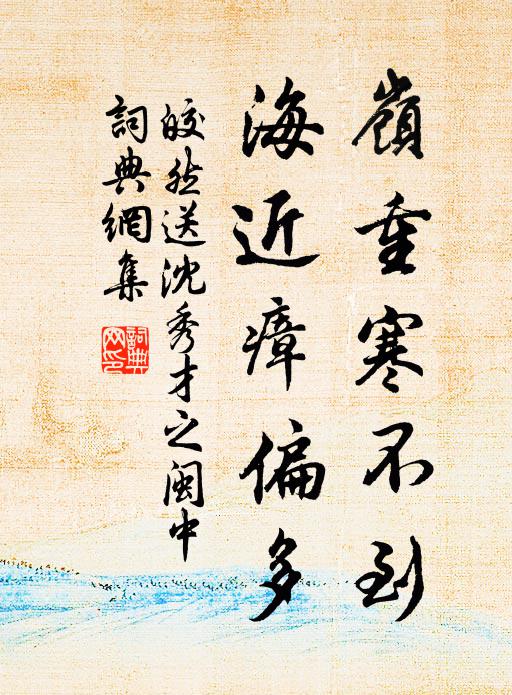 嶺重寒不到
海近瘴偏多
皎然送沈秀才之閩中
詞典網集
詞典網印